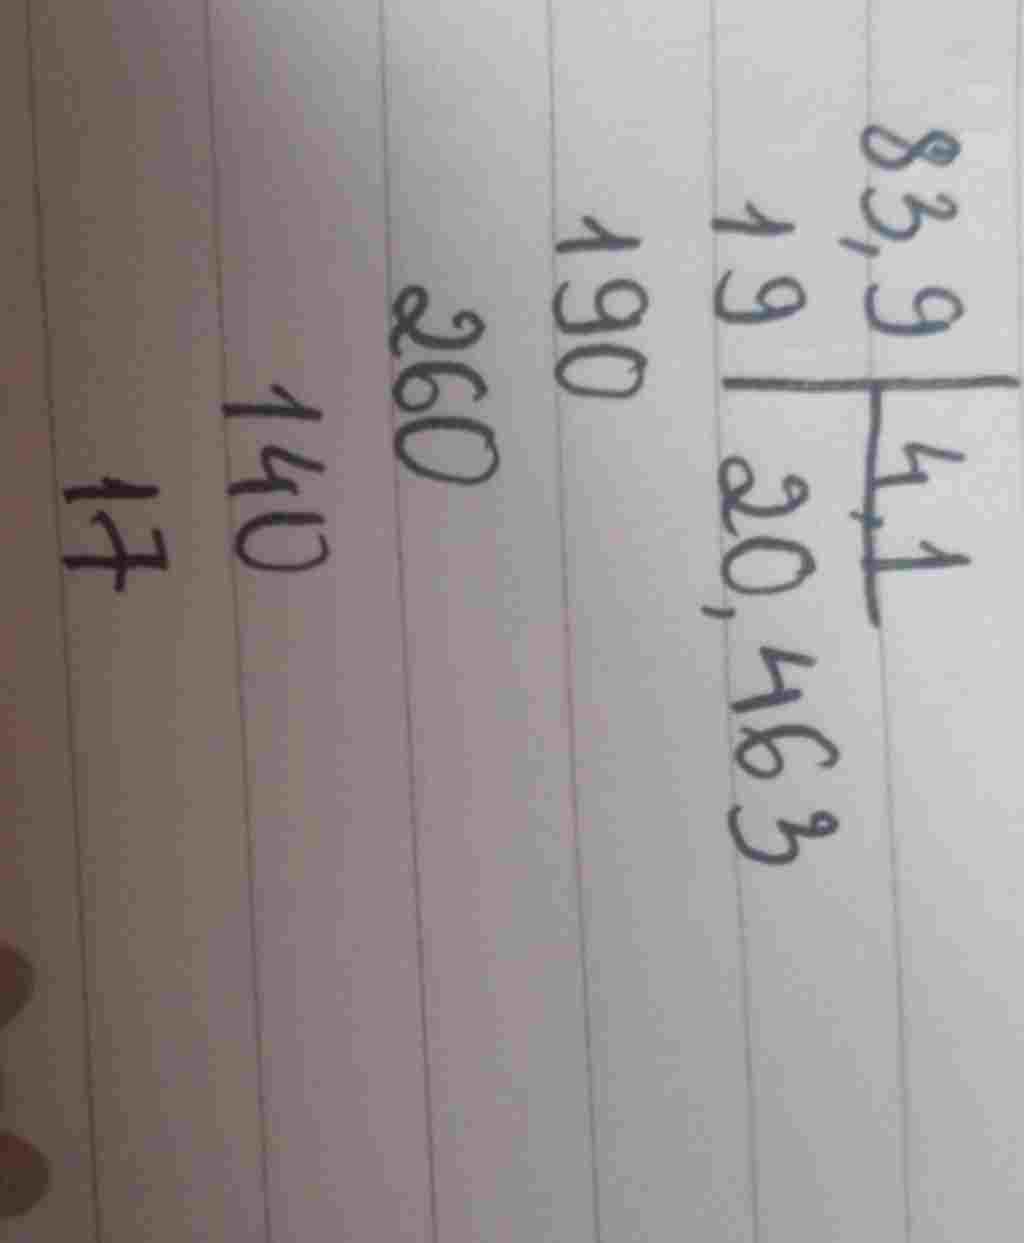 83,9 4,1
19 20,463
190
260
140
17